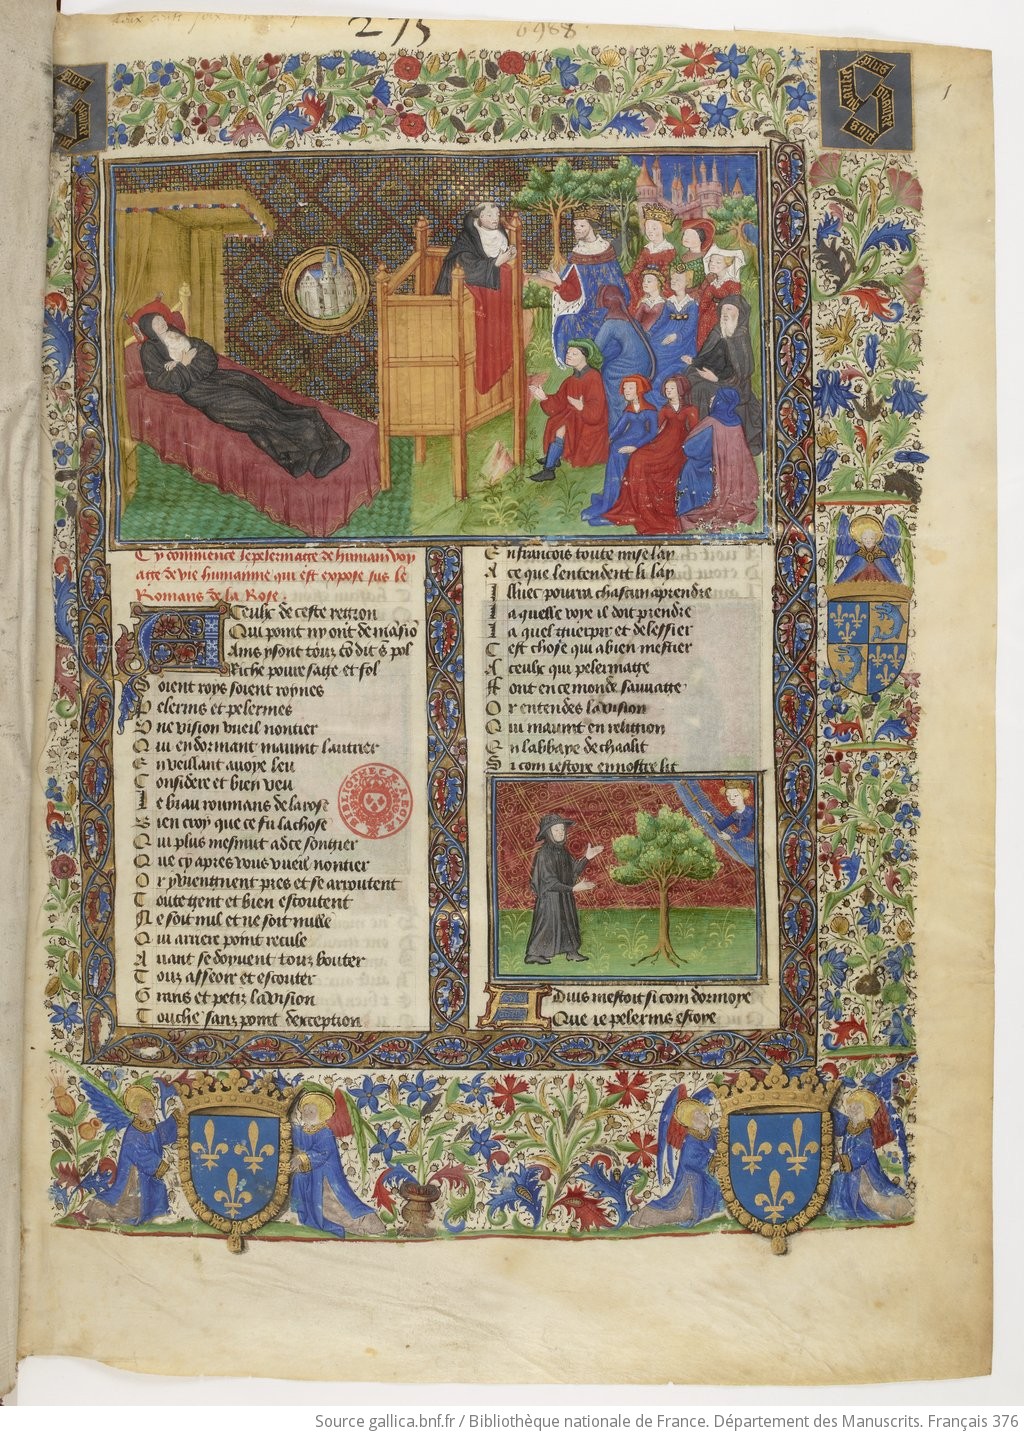 275
6988
1
plus
Cy commence le pelerinage de humain voy
age de vie humainne qui est expose sus le
Romans de la Rose .
A Ceulx de ceste region
Qui point ny ont de
Ains y sont touz
Riche poure sage et fol
Soient roys soient roynes
Pelerins et pelerines
Une vision vueil noncier
Qui en dormant mavint lautrier
En veillant avoye leu
Considere et bien veu
Le biau roumans de la rose
Bien croy que ce fu la chose
Qui plus mesmut ad ce songier
Que cy apres vous vueil noncier
Or y viengnent pres et se arroutent
Toute gent et bien escoutent
Ne soit nul et ne soit nulle
Qui arriere point recule
Avant se doyvent touz bouter
Touz asseoir et escouter
Grans et petiz la vision
Touche sanz point dexception
En francois toute mise lay
A ce que lentendent li lay
Illuec pourra chascun aprendre
La quelle voye il doit prendre
La quel guerpir et delessier
Cest chose qui a bien mestier
A ceulx qui pelerinage
Font en ce monde sauvage
Or entendes la vision
Qui mavint en religion
En labbaye de chaalit
Si com iestoie en nostre lit
BIBLIOTHECAE REGIAE
Advis mestoit si com dormoye
Que ie pelerins estoye
Source gallica.bnf.fr / Bibliothèque nationale de France. Département des Manuscrits. Français 376